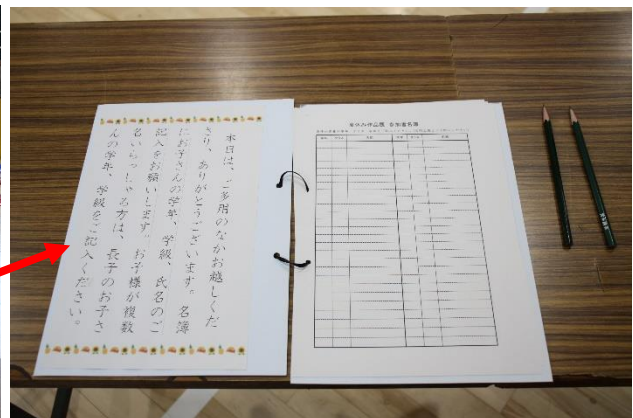 本日は、ご多用のなかお越しくだ
さり、ありがとうございます。名簿
にお子さんの学年、学級、氏名のご
記入をお願いします。お子様が複数
名いらっしゃる方は、長子のお子さ
んの学年、学級をご記入ください。
冬休み作品展 参加者名簿